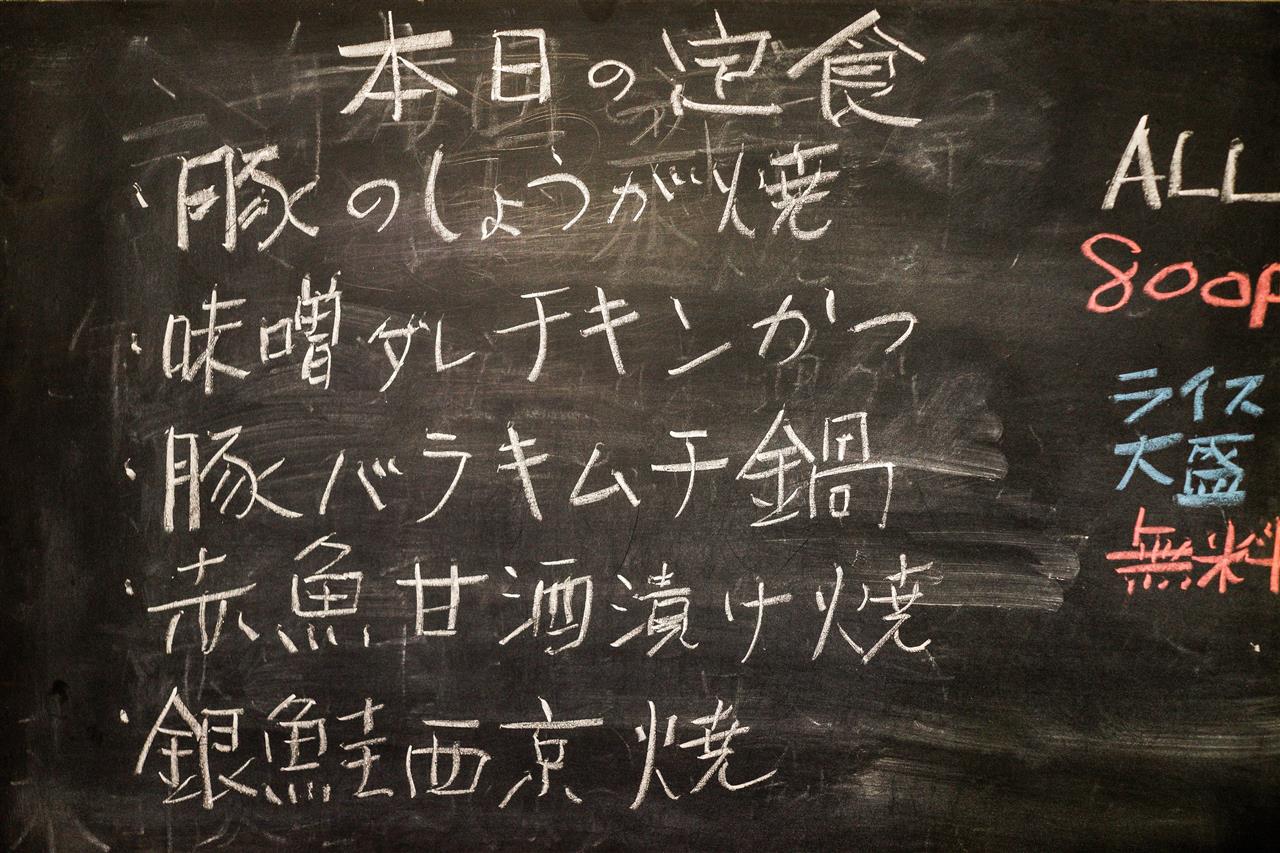 本日の定食
・豚のしょうが焼
・味噌ダレチキンかつ
・豚バラキムチ鍋
・赤魚甘酒漬け焼
・銀鮭西京焼
ALL
800
ライス
大盛
無料